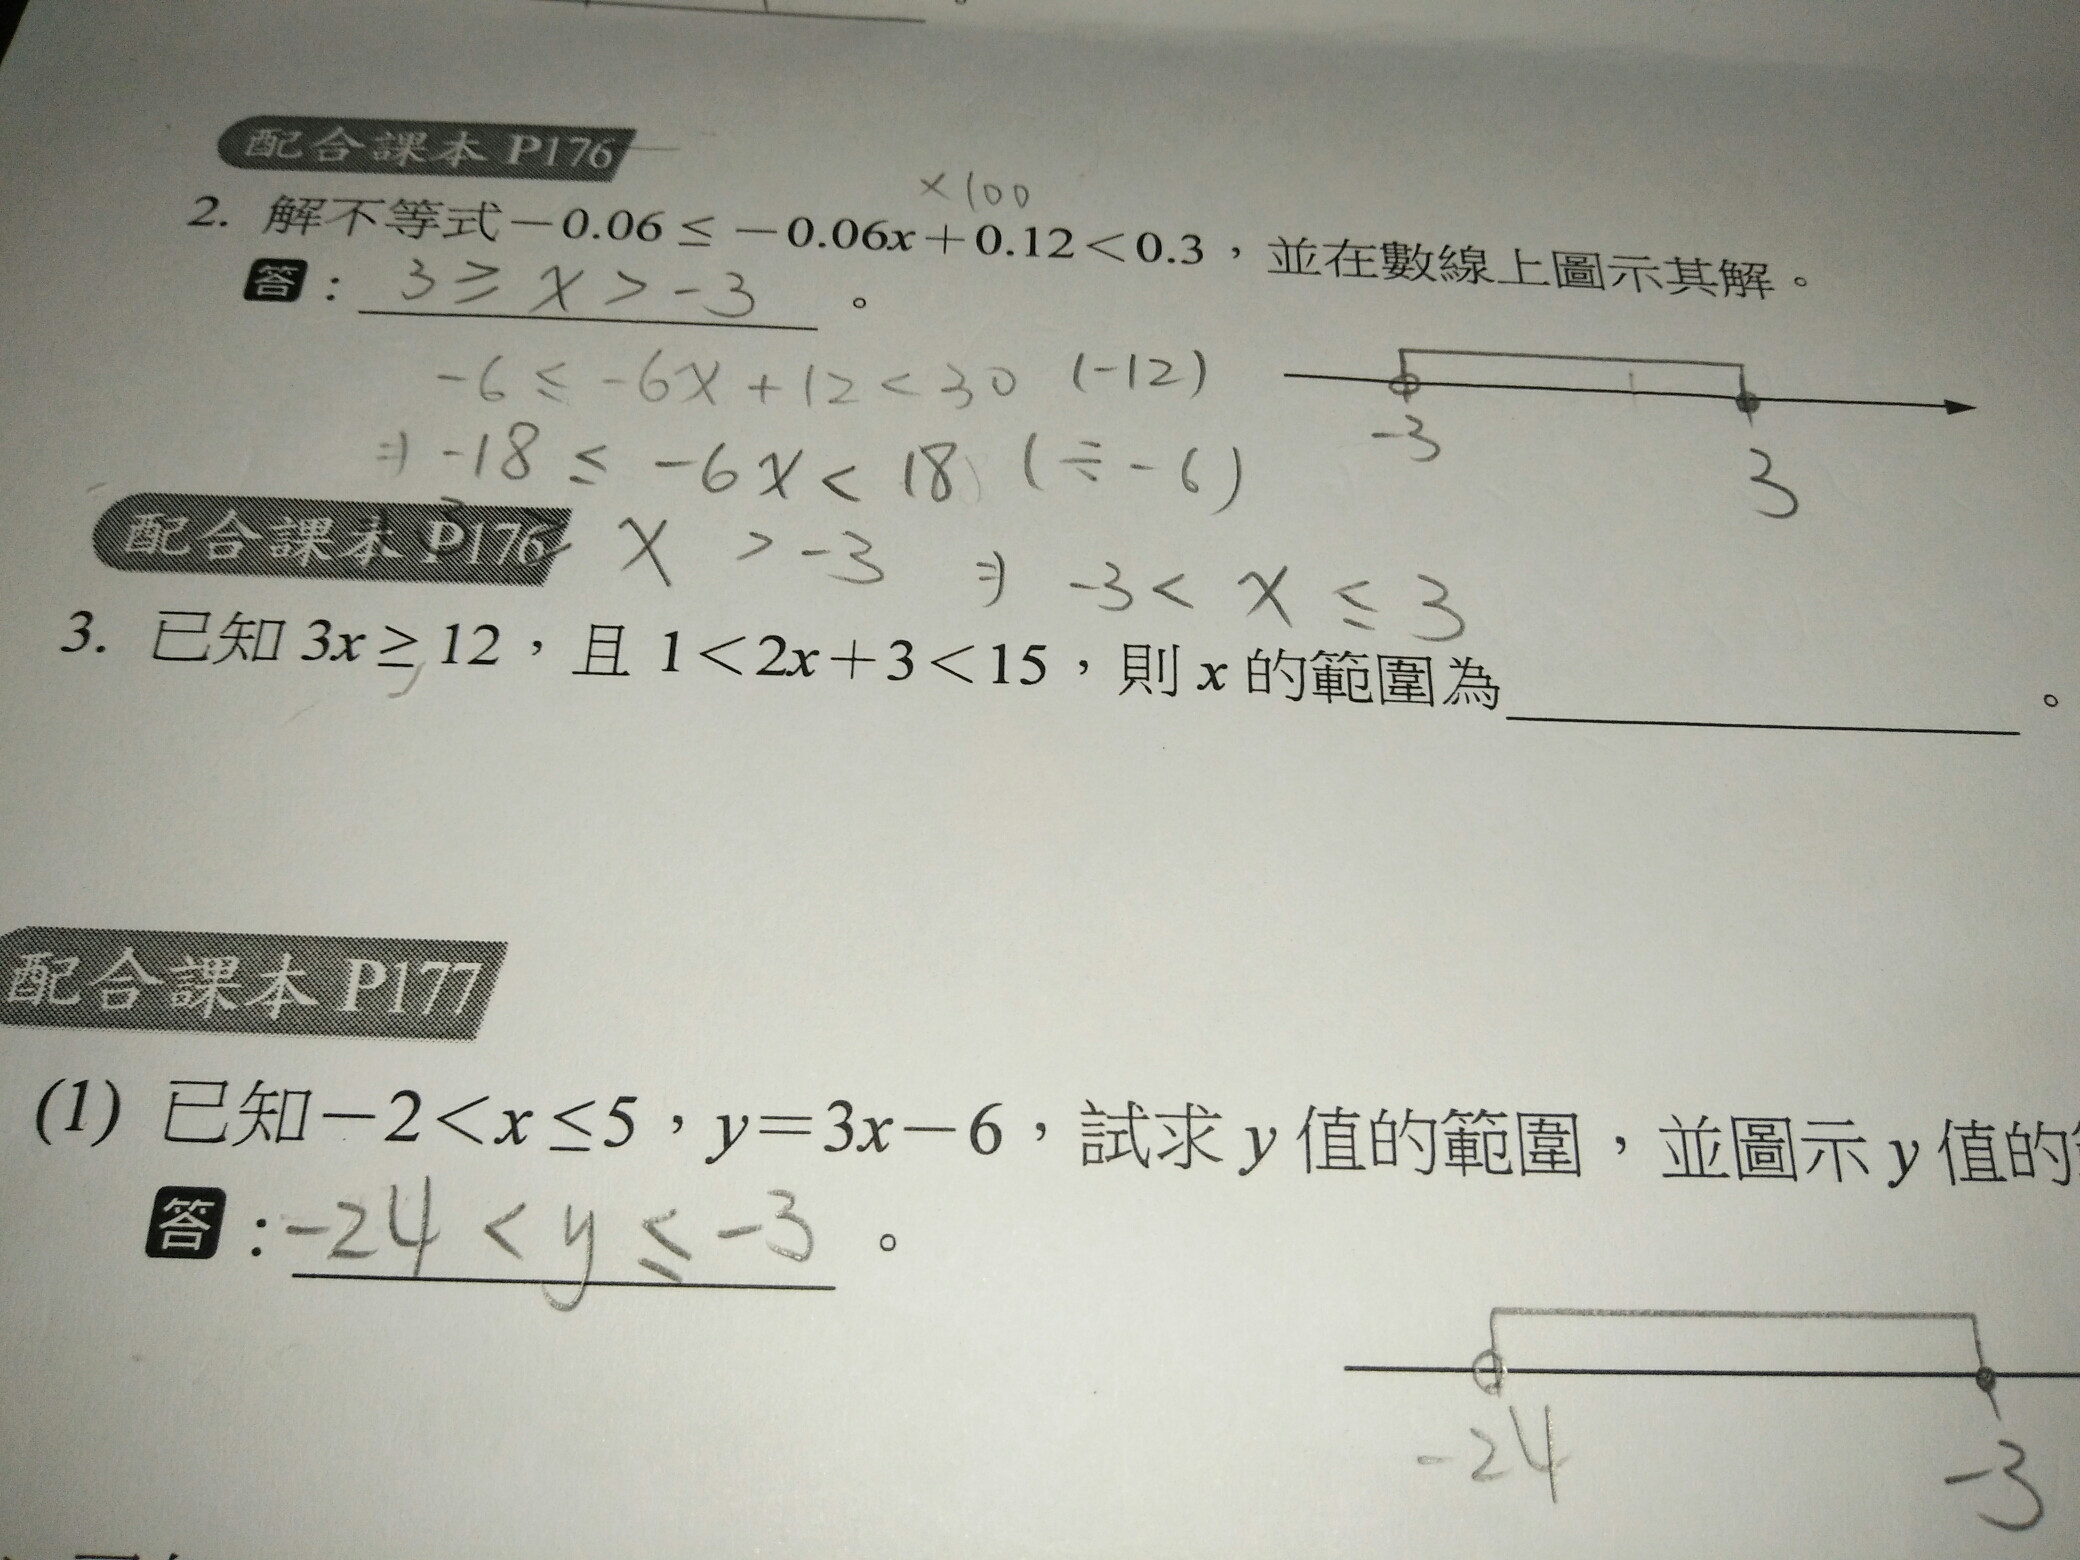 配合課本 P176
×100
2. 解不等式－0.06≤－0.06x＋0.12＜0.3，並在數線上圖示其解。
答：3≥x>-3。
-6≤-6x+12<30 (-12)
-3 3
⇒ -18≤-6x<18 (÷-6)
配合課本 P176
x >-3 ⇒ -3<x≤3
3. 已知 3x≥12，且 1＜2x＋3＜15，則 x 的範圍為。
配合課本 P177
(1) 已知－2＜x≤5，y＝3x－6，試求 y 值的範圍，並圖示 y 值的
答：-24<y≤-3。
-24 -3